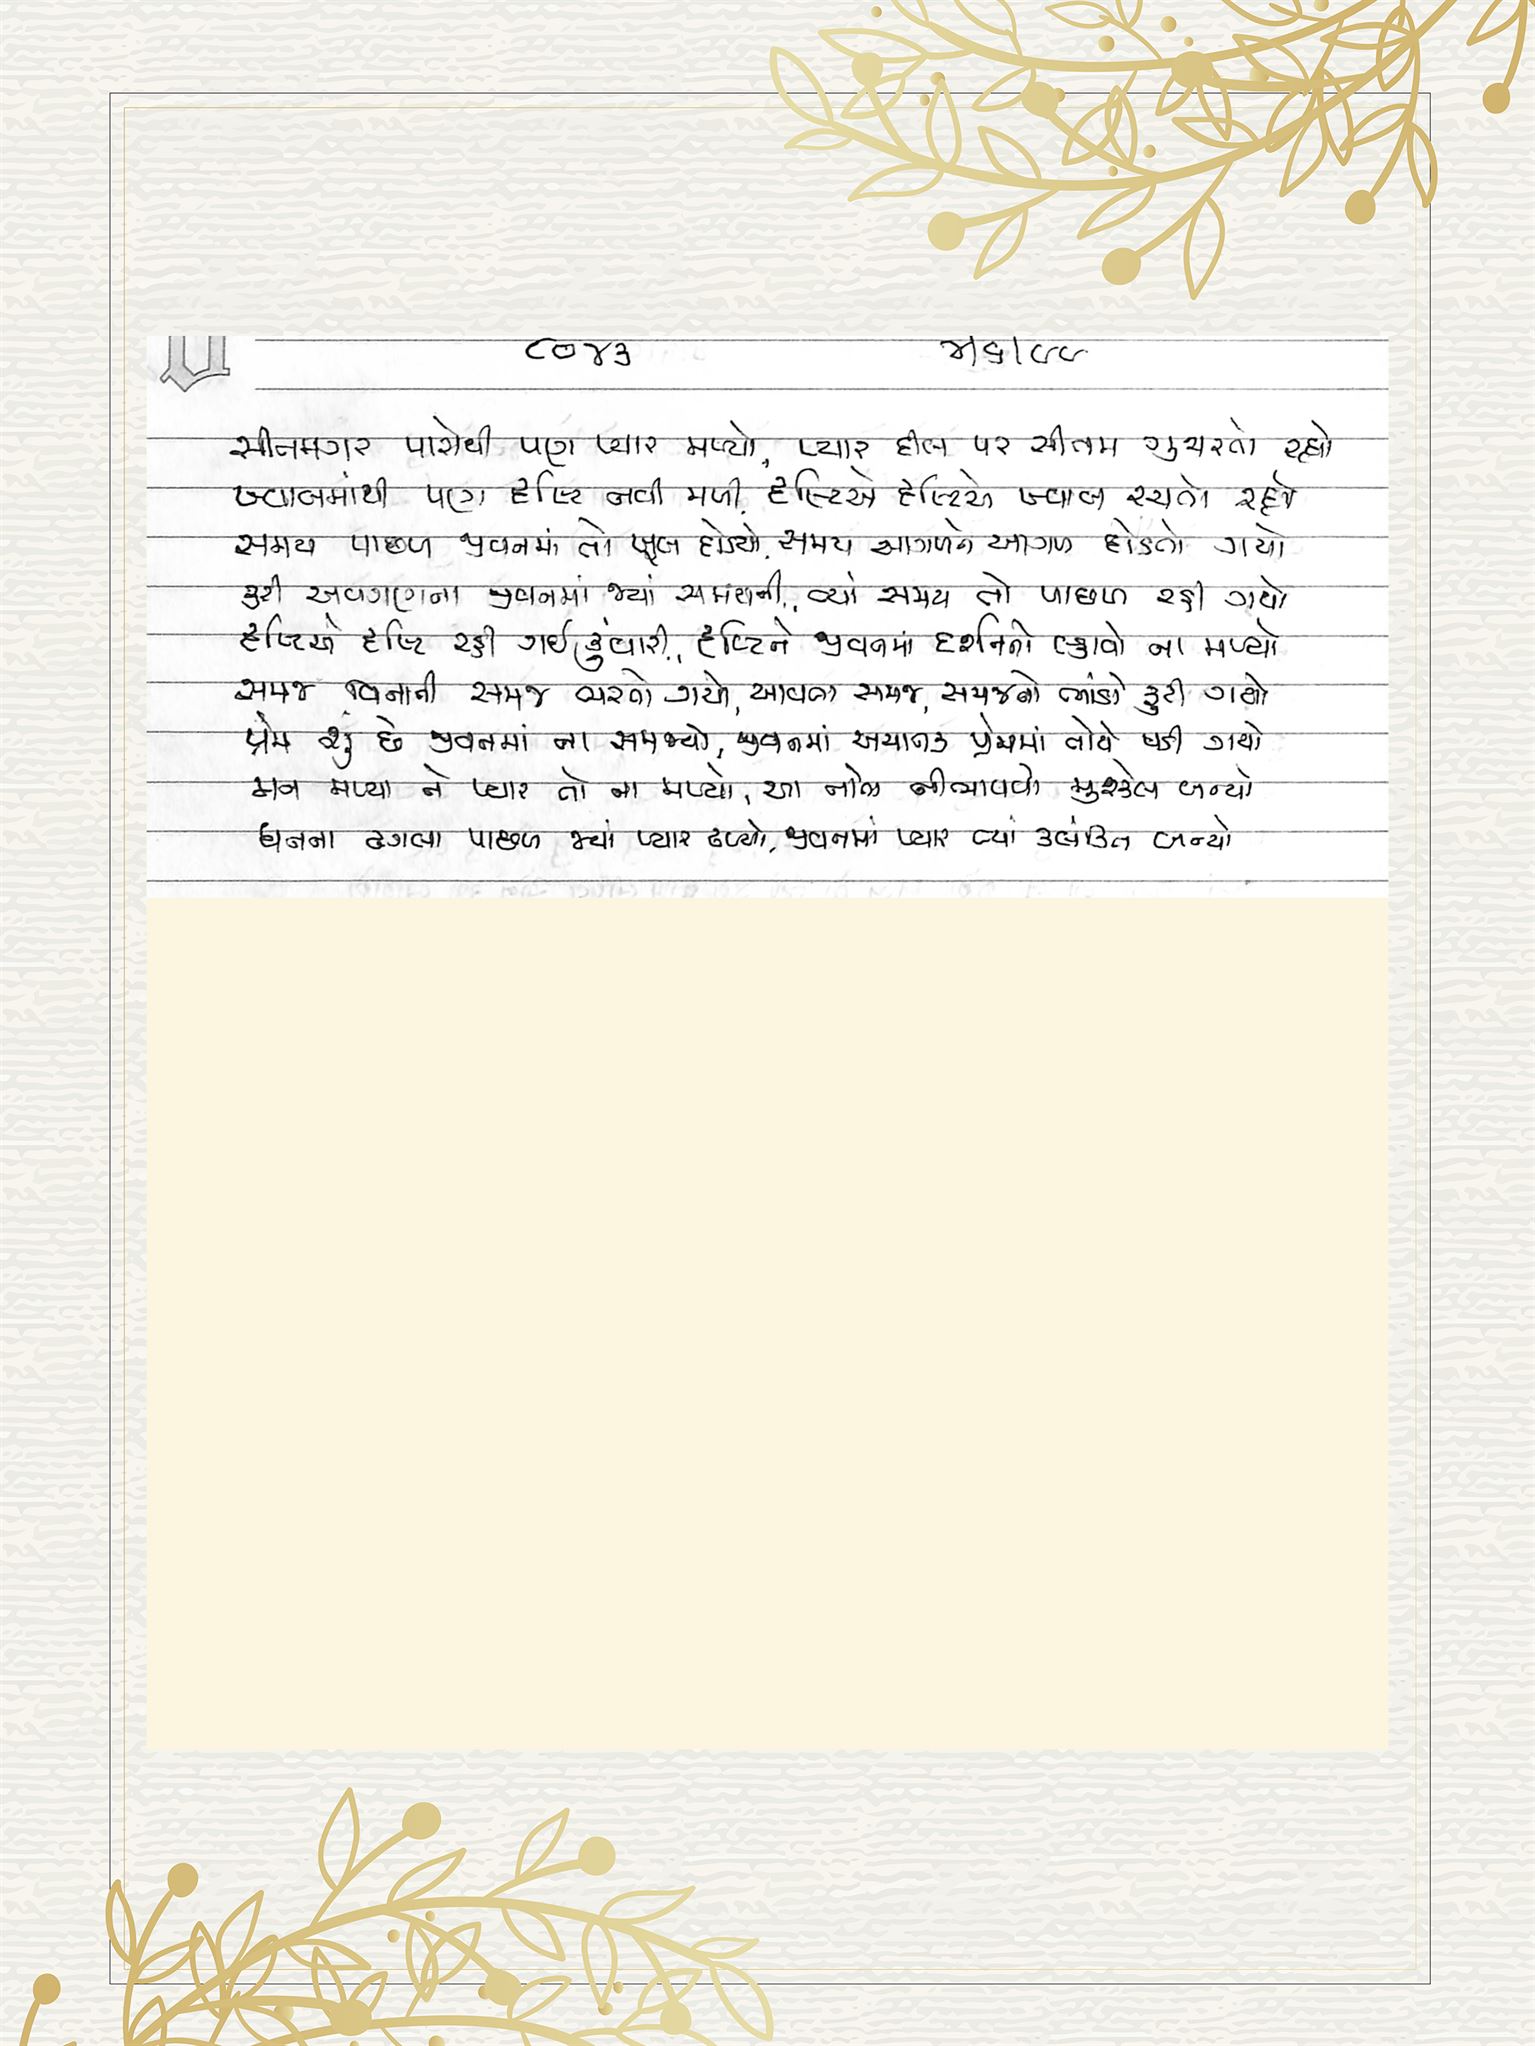 ૮૦૪૩ ૪|૬|૯૯
સીતમગર પાસેથી પણ પ્યાર મળ્યો, પ્યાર દીલ પર સીતમ ગુજારતો રહ્યો
ખ્વાબમાંથી પણ દૃષ્ટિ નવી મળી, દૃષ્ટિએ દૃષ્ટિએ ખ્વાબ રચતો રહ્યો
સમય પાછળ જીવનમાં તો ખૂબ દોડયો, સમય આગળને આગળ દોડતો ગયો
કરી અવગણના જીવનમાં જ્યાં સમયની, ત્યાં સમય તો પાછળ રહી ગયો
દૃષ્ટિએ દૃષ્ટિ રહી ગઈ કુંવારી, દૃષ્ટિને જીવનમાં દર્શનનો લ્હાવો ના મળ્યો
સમજ વિનાની સમજ ભરતો ગયો, આવતા સમજ, સમજનો ભાંડો ફુટી ગયો
પ્રેમ શું છે જીવનમાં ના સમજ્યો, જીવનમાં અચાનક પ્રેમમાં તોયે પડી ગયો
મન મળ્યા ને પ્યાર તો ના મળ્યો, આ નીભાવવો મુશ્કેલ બન્યો
ધનના ઢગલા પાછળ જ્યાં પ્યાર ઢળ્યો, જીવનમાં પ્યાર ત્યાં કલંકિત બન્યો